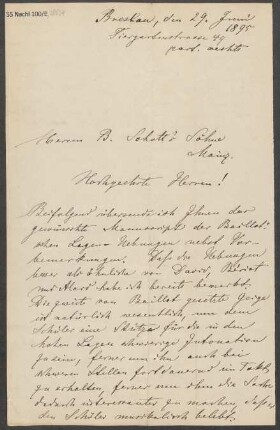 55 Nachl 100/B
Breslau, den 29. Juni
1895
Tiergartenstrasse 49
part. rechts
Herrn B. Schott's Söhne
Mainz.
Hochgeehrte Herren!
Beifolgend übersende ich Ihnen das
gewünschte Manuscript der Baillot'
schen Lagen-Uebungen nebst Vor-
bemerkungen. Daß die Uebungen
besser als ähnliche von David, Bériot
und Alard habe ich bereits bemerkt.
Die zweite von Baillot gesetzte Geige
ist natürlich wesentlich, um dem
Schüler eine Stütze für die in den
hohen Lagen schwierige Intonation
zu sein, ferner um ihn auch bei
schweren Stellen fortdauernd im Takt
zu erhalten, ferner um ohne die Sache
dadurch interessanter zu machen, dass es
den Schüler musikalisch belebt.